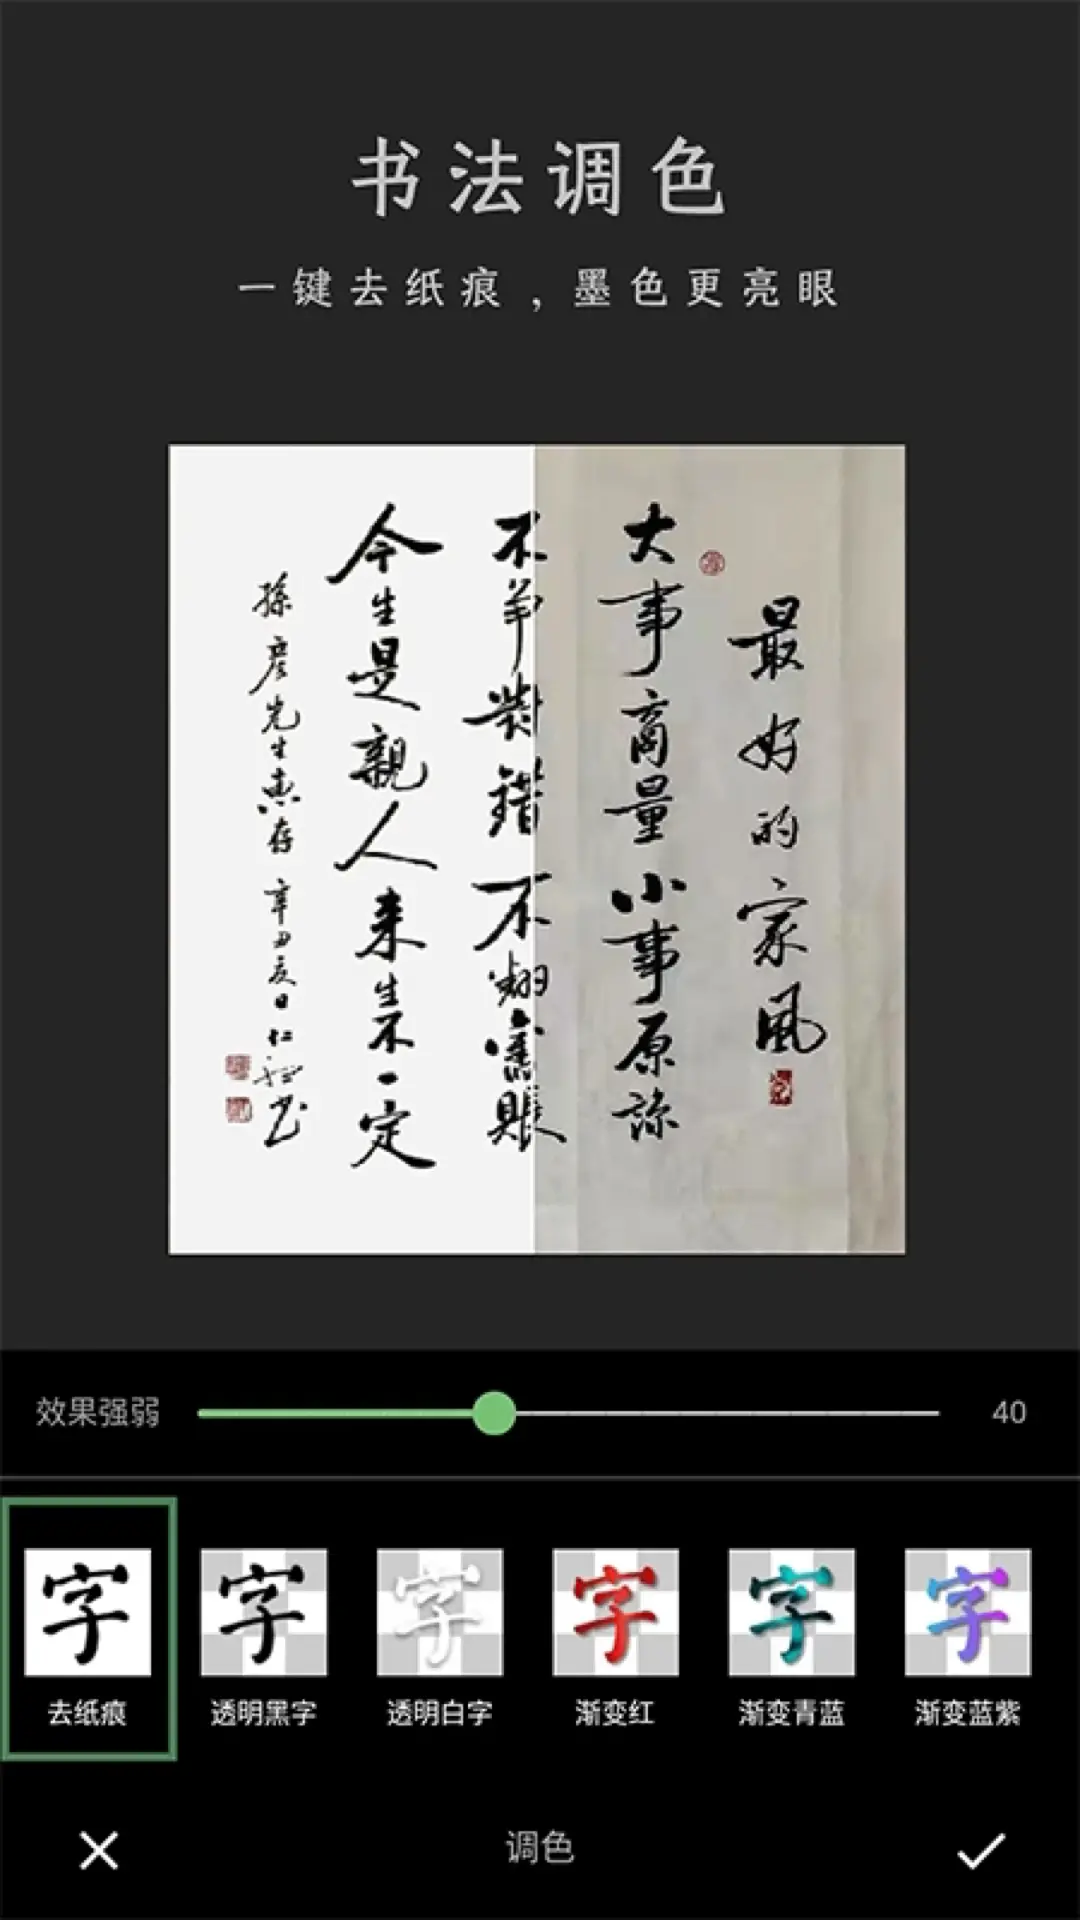 书法调色
一键去纸痕，墨色更亮眼
最好的家风
大事商量小事原谅
不争對錯不翻舊賬
今生是親人来生不一定
孫彦先生惠存 辛丑夏日仁
效果强弱 40
去纸痕 透明黑字 透明白字 渐变红 渐变青蓝 渐变蓝紫
调色